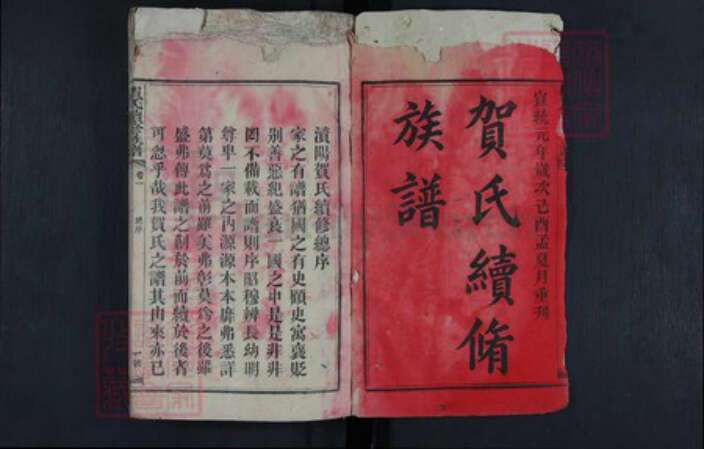 宣統元年歲次己酉孟夏月重刊
賀氏續脩
族譜
濆陽賀氏續修總序
家之有譜猶國之有史顧史寓襃貶
別善惡紀盛衰一國之中是是非非
罔不備載而譜則序昭穆辨長幼明
尊卑一家之內源源本本靡弗悉詳
第莫爲之前雖美弗彰莫爲之後雖
盛弗傳此譜之刱於前而續於後者
可忽乎哉我賀氏之譜其由來亦已
賀氏續脩族譜 卷一 總序 一